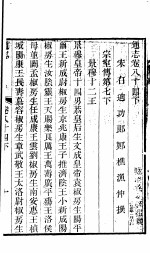 通志卷八十四下
宋右迪功郎鄭樵漁仲撰
宗室傳第七下
景穆十二王
景穆皇帝十四男恭皇后生文成皇帝袁椒房生陽平
王新成尉椒房生京兆康王子推濟陰王小新成陽
椒房生汝陰靈王天賜樂浪厲王萬壽廣平殤王洛侯
母並闕孟椒房生任城康王雲劉椒房生南安惠王楨
城陽康王長壽慕容椒房生章武敬王太洛尉椒